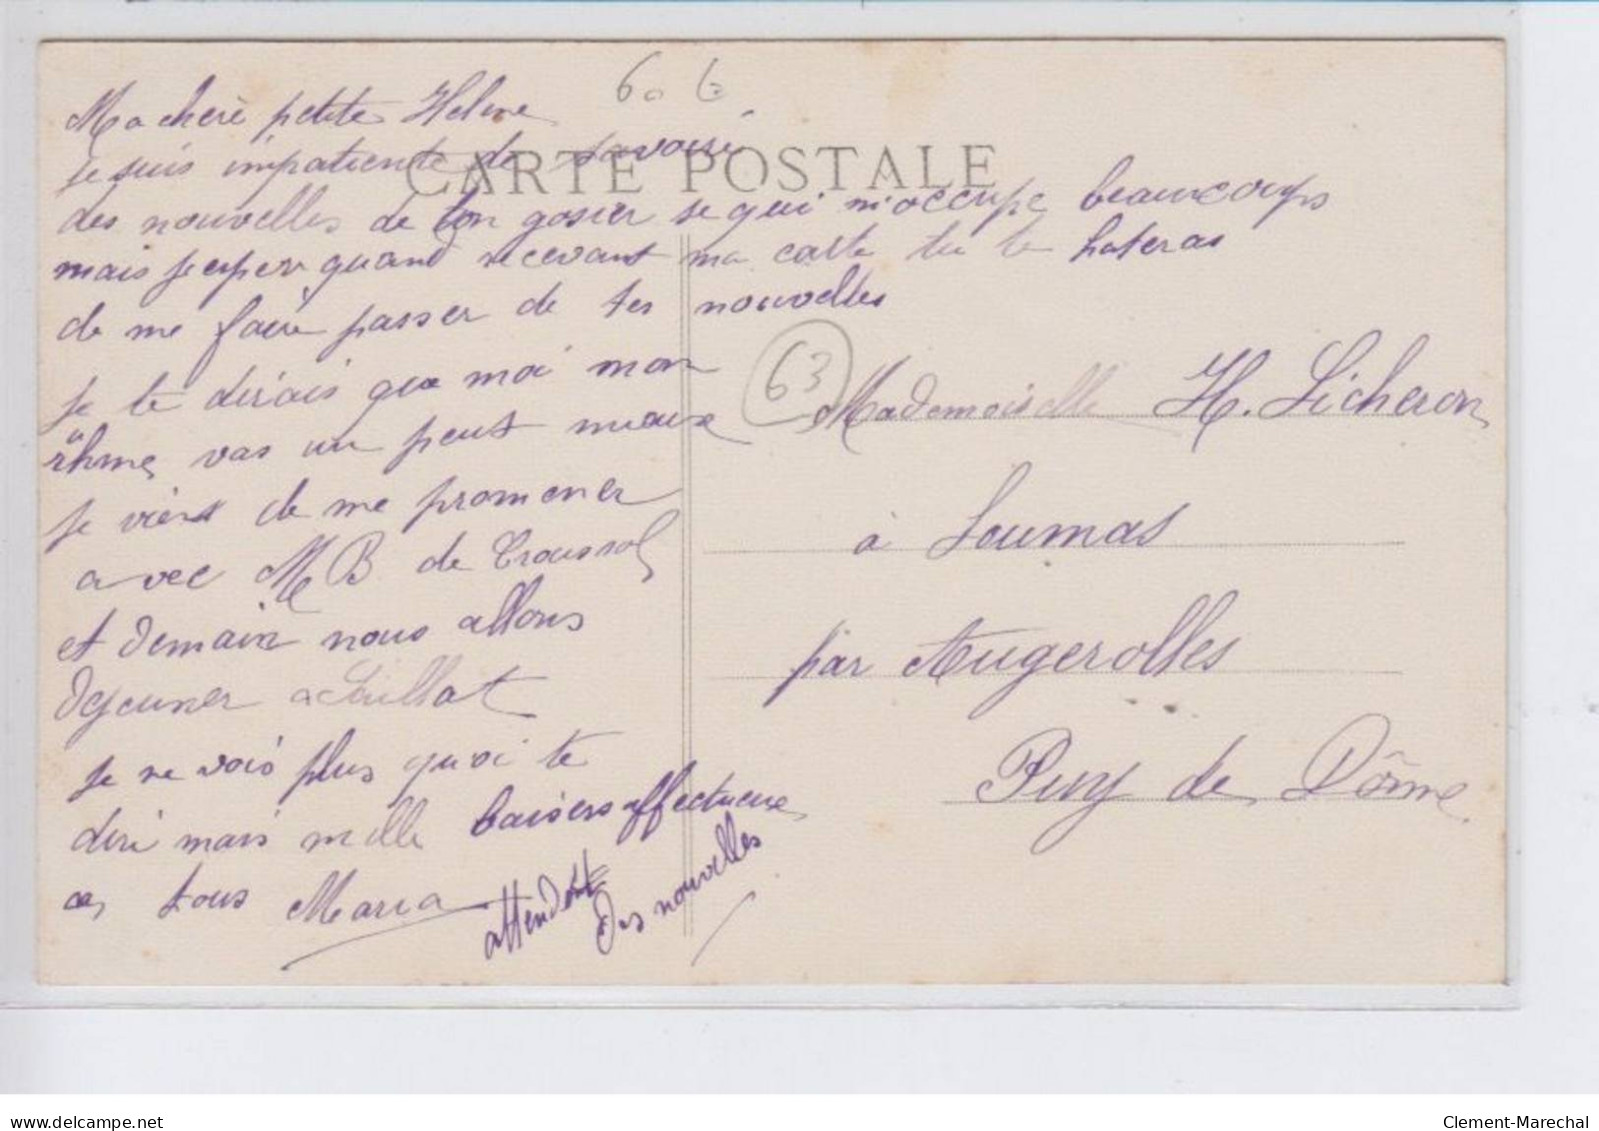 60 6
Ma chère petite Helene
CARTE POSTALE
je suis impatiente de savoir
des nouvelles de ton gosier se qui m'occupe beaucoups
mais j'esper quand recevant ma carte tu te hateras
de me faire passer de tes nouvelles
je te dirais que moi mon
rhme vas un peut mieux
je viens de me promener
avec M B de Troussol
et demain nous allons
dejeuner a Saillat
je ne vois plus quoi te
dire mais mille baisers affectueux
a tous Maria
attendent
des nouvelles
63
Mademoiselle H. Licheron
à Loumas
par Augerolles
Puy de Dôme
delcampe.net
Clement-Marechal